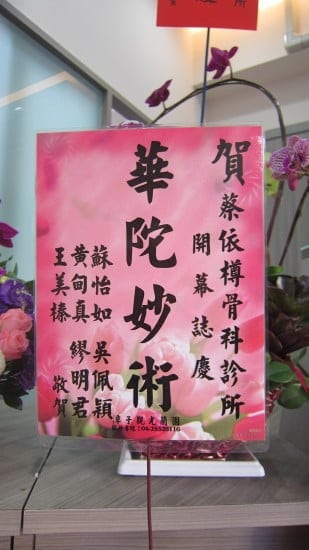 賀蔡依樽骨科診所
開幕誌慶
華陀妙術
蘇怡如 吳佩穎
黃甸真 繆明君
王美榛 敬賀
子觀光蘭園
所